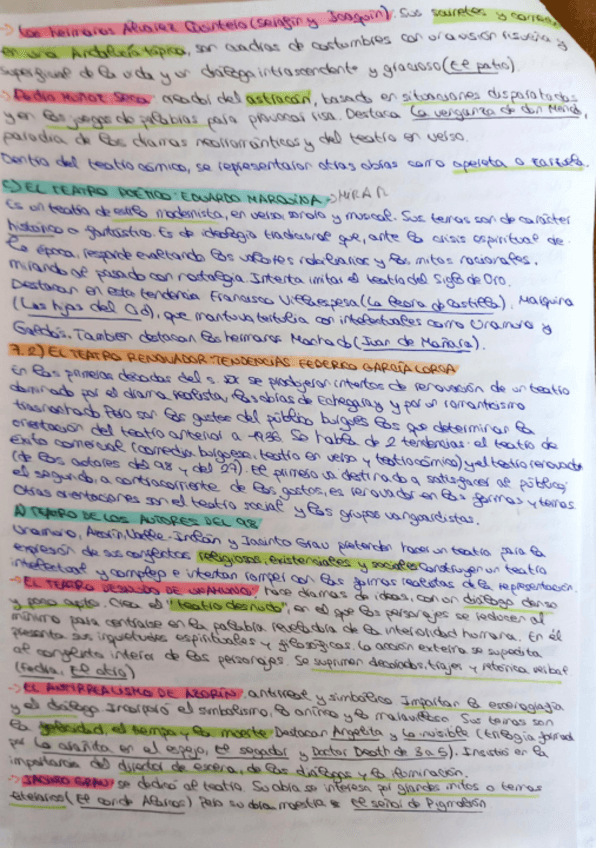 → Los hermanos Álvarez Quintero (Serafín y Joaquín). Sus sainetes y comedias
en una Andalucía típica, son cuadros de costumbres con una visión risueña y
superficial de la vida y un diálogo intrascendente y gracioso (El patio).
→ Pedro Muñoz Seca creador del astracán, basado en situaciones disparatadas
y en los juegos de palabras para provocar risa. Destaca La venganza de Don Mendo,
parodia de los dramas neorrománticos y del teatro en verso.
Dentro del teatro cómico, se representaron otras obras como opereta o zarzuela.
C) EL TEATRO POÉTICO: EDUARDO MARQUINA
Es un teatro de estilo modernista, en verso, sonoro y musical. Sus temas son de carácter
histórico o fantástico. Es de ideología tradicional que, ante la crisis espiritual de
la época, responde exaltando los valores nobiliarios y los mitos nacionales,
mirando al pasado con nostalgia. Intenta imitar el teatro del Siglo de Oro.
Destacan en esta tendencia Francisco Villaespesa (La leona de Castilla), Marquina
(Las hijas del Cid), que mantuvo tertulia con intelectuales como Unamuno y
Galdós. También destacan los hermanos Machado (Juan de Mañara).
7.2) EL TEATRO RENOVADOR: TENDENCIAS. FEDERICO GARCÍA LORCA
En las primeras décadas del s. XX se produjeron intentos de renovación de un teatro
dominado por el drama realista, las obras de Echegaray y por un romanticismo
trasnochado. Pero son los gustos del público burgués los que determinan la
orientación del teatro anterior a 1936. Se habla de 2 tendencias: el teatro de
éxito comercial (comedia burguesa, teatro en verso y teatro cómico) y el teatro renovador
(de los autores del 98 y del 27). El primero va destinado a satisfacer al público;
el segundo, a contracorriente de los gustos, es renovador en las formas y temas.
Otras orientaciones son el teatro social y los grupos vanguardistas.
A) TEATRO DE LOS AUTORES DEL 98
Unamuno, Azorín, Valle-Inclán y Jacinto Grau pretenden hacer un teatro para la
expresión de sus conflictos religiosos, existenciales y sociales. Construyen un teatro
intelectual y complejo e intentan romper con las formas realistas de la representación.
→ EL TEATRO DESNUDO DE UNAMUNO, hace dramas de ideas, con un diálogo denso
y poco apto. Crea el "teatro desnudo", en el que los personajes se reducen al
mínimo para centrarse en la palabra reveladora de la interioridad humana. En él
presenta sus inquietudes espirituales y filosóficas. La acción externa se supedita
al conflicto interior de los personajes. Se suprimen decorados, trajes y retórica verbal
(Fedra, El otro)
→ EL ANTIRREALISMO DE AZORÍN, antirreal y simbólico. Importan la escenografía
y el diálogo. Incorporó el simbolismo, lo onírico y lo maravilloso. Sus temas son
la felicidad, el tiempo y la muerte. Destacan Angelita y Lo invisible (trilogía formada
por La arañita en el espejo, El segador y Doctor Death de 3 a 5). Insistió en la
importancia del director de escena, de los diálogos y la iluminación.
→ JACINTO GRAU se dedicó al teatro. Su obra se interesa por grandes mitos o temas
literarios (El conde Alarcos) Pero su obra maestra es El señor de Pigmalión